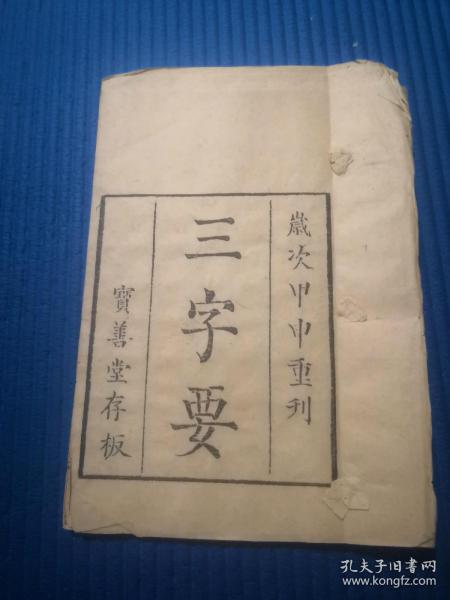 歲次甲申重刊
三字要
寳善堂存板
孔夫子旧书网
www.kongfz.com